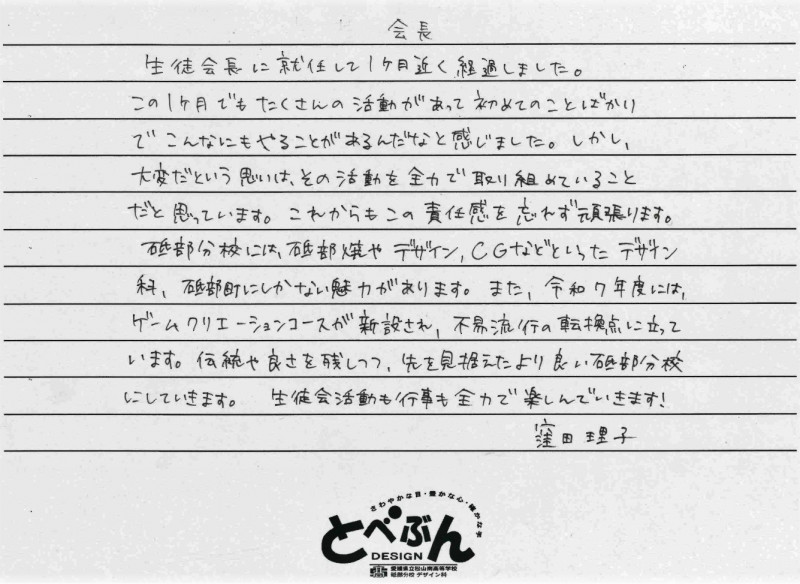 会長
生徒会長に就任して1ケ月近く経過しました。
この1ケ月でもたくさんの活動があって初めてのことばかり
でこんなにもやることがあるんだなと感じました。しかし、
大変だという思いは、その活動を全力で取り組めていること
だと思っています。これからもこの責任感を忘れず頑張ります。
砥部分校には、砥部焼やデザイン、CGなどといったデザイン
科、砥部町にしかない魅力があります。また、令和7年度には、
ゲームクリエーションコースが新設され、不易流行の転換点に立って
います。伝統や良さを残しつつ、先を見据えたより良い砥部分校
にしていきます。 生徒会活動も行事も全力で楽しんでいきます!
窪田理子
さわやかな目・豊かな心・確かな手
とべぶん
DESIGN
愛媛県立松山南高等学校
砥部分校 デザイン科